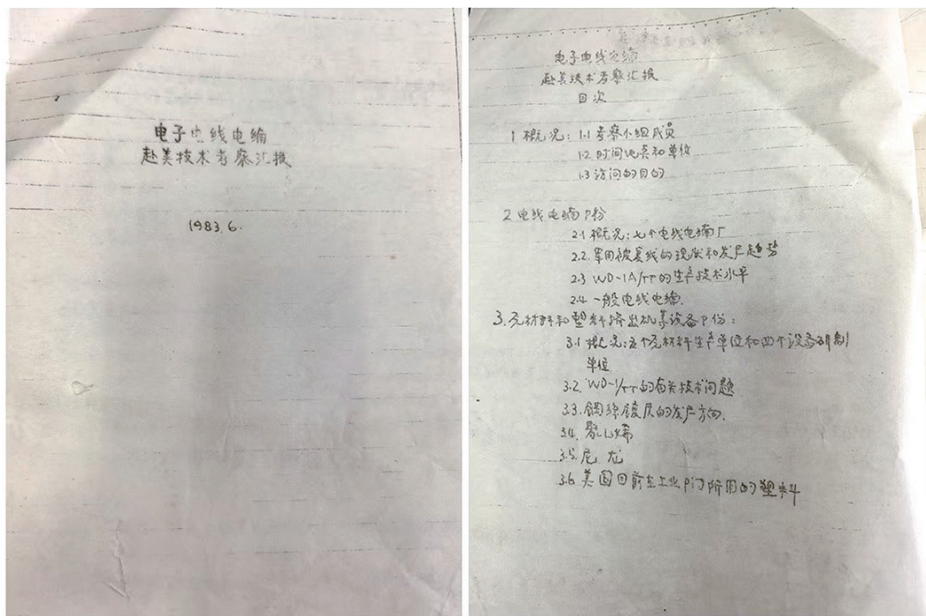 电子电线电缆
赴美技术考察汇报
1983.6.
电子电线电缆
赴美技术考察汇报
目次
1 概况：1.1 考察小组成员
1.2 时间地点和单位
1.3 访问的目的
2 电线电缆P份
2.1 概况：七个电线电缆厂
2.2. 军用被复线的现状和发展趋势
2.3 WD-1A/TT的生产技术水平
2.4 一般电线电缆.
3. 元材料和塑料挤出机等设备P份：
3.1 概况：五个元材料生产单位和四个设备研制
单位
3.2. WD-1/TT的有关技术问题
3.3. 铜线镀层的发展方向.
3.4. 聚乙烯
3.5. 尼龙
3.6 美国目前在工业P门所用的塑料